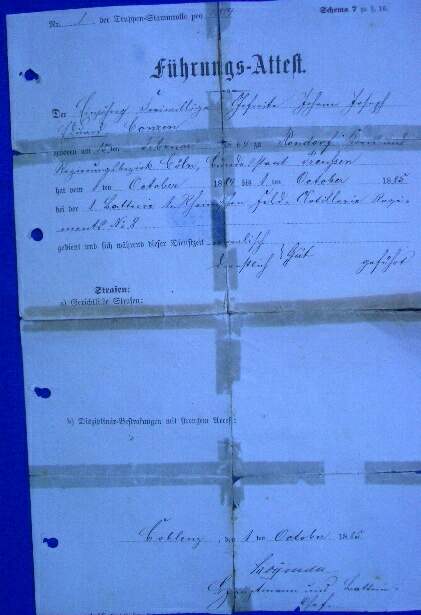 Nr. 1 der Truppen-Stammrolle pro 1884
Schema 7 zu §. 16.
Führungs-Attest.
Der Einjährig Freiwillige Gefreite Johann Joseph
Eduard
geboren am zu Rondorf Kreis und
Regierungsbezirk Cöln, Bundesstaat Preußen
hat vom 1ten October 1884 bis 1. October 1885
bei der 1. Batterie Rheinischen Feld-Artillerie Regi-
ments No. 8
gedient und sich während dieser Dienstzeit
dienstlich Gut geführt
Strafen:
a) Gerichtliche Strafen:
b) Disziplinar-Bestrafungen mit strengem Arrest:
Coblenz, den 1. October 1885.
Hauptmann und Batterie-
Chef